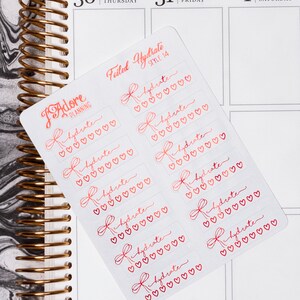 30 THURSDAY 31 FRIDAY
J'Adore
PLANNING
Foiled Hydrate
hydrate
hydrate
hydrate
hydrate
hydrate
hydrate
hydrate
hydrate
hydrate
hydrate
hydrate
hydrate